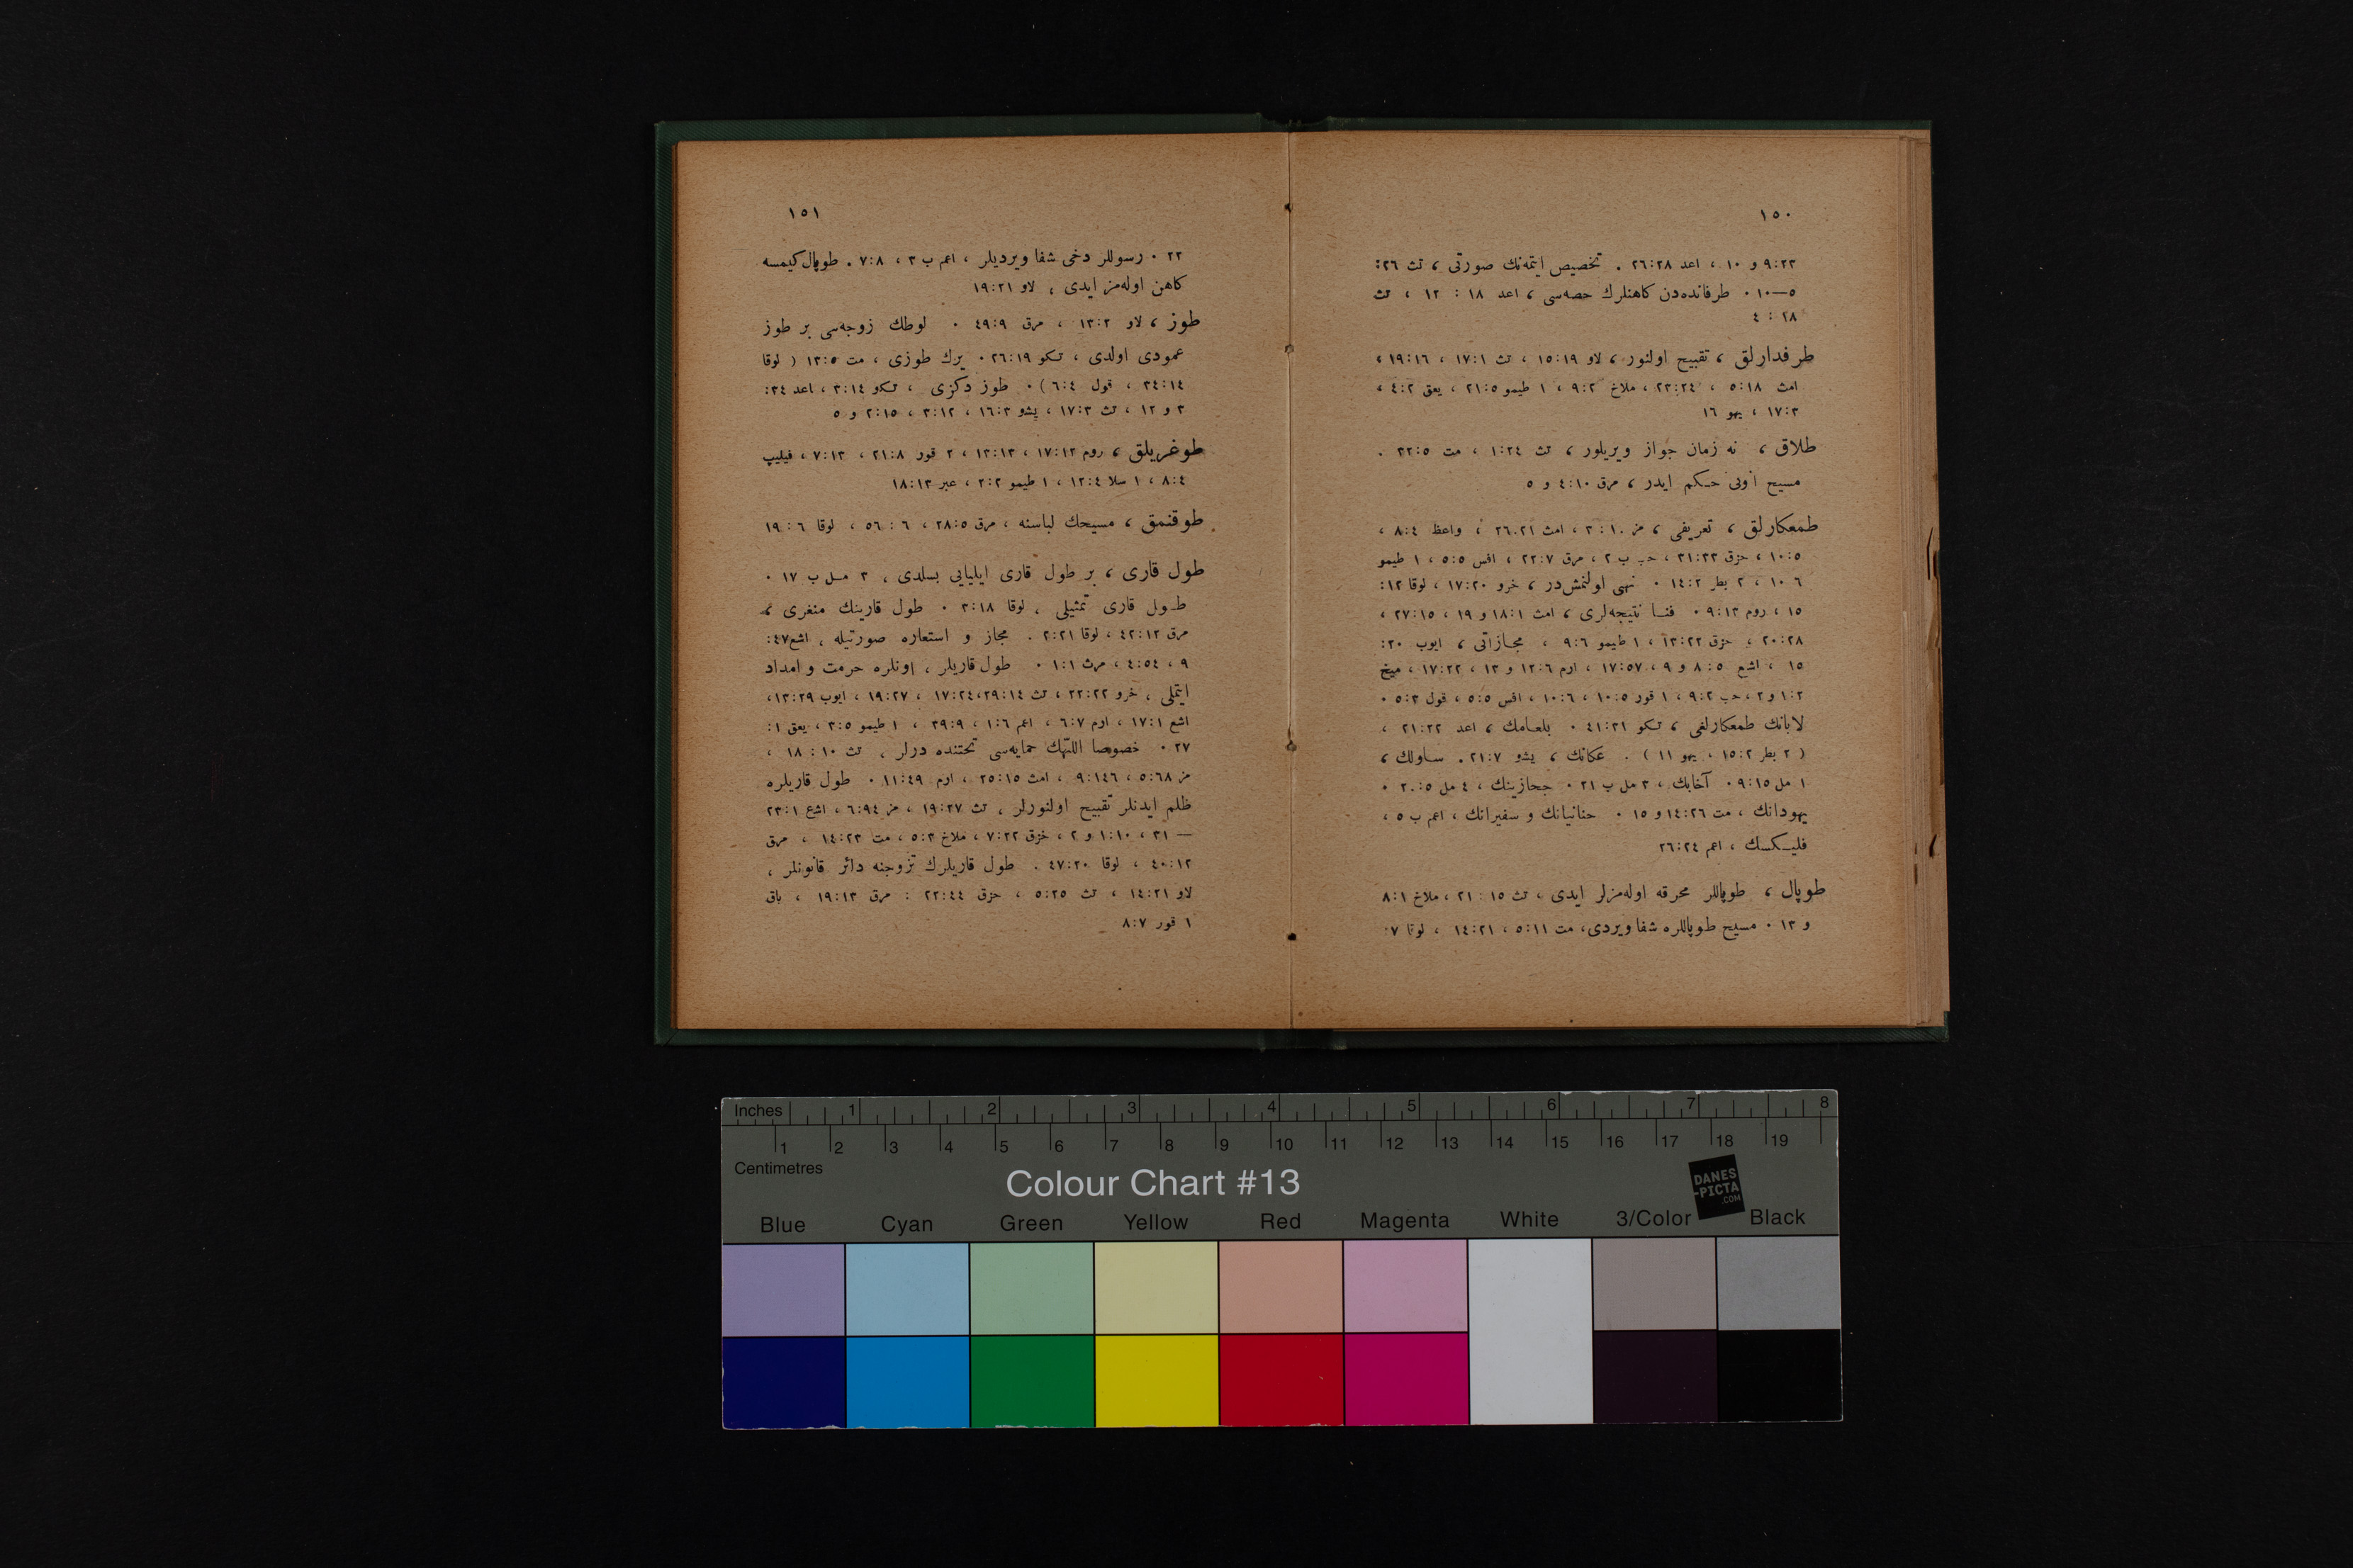 ١٥٠
٩:٢٣ و ١٠ ، اعد ٢٦:٢٨ . تخصيص ايتمه‌نك صورتى ، تث ٢٦:
٥—١٠ . طرفانده‌دن كاهنلرك حصه‌سى ، اعد ١٨ : ١٢ ، تث
١٨ : ٤
طرفدارلق ، تقبيح اولنور ، لاو ١٥:١٩ ، تث ١٧:١ ، ١٩:١٦ ،
امث ٥:١٨ ، ٢٣:٢٤ ، ملاخ ٩:٢ ، ١ طيمو ٢١:٥ ، يعق ٤:٢ ،
١٧:٣ ، يهو ١٦
طلاق ، نه زمان جواز ويريلور ، تث ١:٢٤ ، مت ٣٢:٥ .
مسيح اونى حكم ايدر ، مرق ٤:١٠ و ٥
طمعكارلق ، تعريفى ، مز ٣:١٠ ، امث ٢٦:٢١ ، واعظ ٨:٤ ،
١٠:٥ ، حزق ٣١:٣٣ ، حب ب ٢ ، مرق ٢٢:٧ ، افس ٥:٥ ، ١ طيمو
٦ ١٠ ، ٢ بطر ١٤:٢ . نهى اولنمش‌در ، خرو ١٧:٢٠ ، لوقا ١٢:
١٥ ، روم ٩:١٣ . فنا نتيجه‌لرى ، امث ١٨:١ و ١٩ ، ٢٧:١٥ ،
٢٠:٢٨ ، حزق ١٣:٢٢ ، ١ طيمو ٩:٦ ، مجازاتى ، ايوب ٢٠:
١٥ ، اشع ٨:٥ و ٩ ، ١٧:٥٧ ، ارم ١٢:٦ و ١٣ ، ١٧:٢٢ ، ميخ
١:٢ و ٢ ، حب ٩:٢ ، ١ قور ١٠:٥ ، ١٠:٦ ، افس ٥:٥ ، قول ٥:٣ .
لابانك طمعكارلغى ، تكو ٤١:٣١ . بلعامك ، اعد ٢١:٢٢ ،
( ٢ بطر ١٥:٢ ، يهو ١١ ) . عكانك ، يشو ٢١:٧ . ساولك ،
١ مل ٩:١٥ . آخابك ، ٣ مل ب ٢١ . جحازينك ، ٤ مل ٢٠:٥ .
يهودانك ، مت ١٤:٢٦ و ١٥ . حنانيانك و سفيرانك ، اعم ب ٥ ،
فليكسك ، اعم ٢٦:٢٤
طوپال ، طوپاللر محرقه اوله‌مزلر ايدى ، تث ١٥ : ٢١ ، ملاخ ٨:١
و ١٣ . مسيح طوپاللره شفا ويردى ، مت ٥:١١ ، ١٤:٢١ ، لوقا ٧
١٥١
٢٢ . رسوللر دخى شفا ويرديلر ، اعم ب ٣ ، ٧:٨ . طوپال كيمسه
كاهن اوله‌مز ايدى ، لاو ١٩:٢١
طوز ، لاو ١٣:٢ ، مرق ٤٩:٩ . لوطك زوجه‌سى بر طوز
عمودى اولدى ، تكو ٢٦:١٩ . يرك طوزى ، مت ١٣:٥ ( لوقا
٣٤:١٤ ، قول ٦:٤ ) . طوز دكزى ، تكو ٣:١٤ ، اعد ٣٤:
٣ و ١٢ ، تث ١٧:٣ ، يشو ١٦:٣ ، ٣:١٢ ، ٢:١٥ و ٥
طوغريلق ، روم ١٧:١٢ ، ١٣:١٣ ، ٢ قور ٢١:٨ ، ٧:١٣ ، فيليپ
٨:٤ ، ١ سلا ١٢:٤ ، ١ طيمو ٢:٢ ، عبر ١٨:١٣
طوقنمق ، مسيحك لباسنه ، مرق ٢٨:٥ ، ٦ : ٥٦ ، لوقا ٦ : ١٩
طول قارى ، بر طول قارى ايليايى بسلدى ، ٣ مل ب ١٧ .
طول قارى تمثيلى ، لوقا ٣:١٨ . طول قارينك منغرى ،
مرق ٤٢:١٢ ، لوقا ٢:٢١ . مجاز و استعاره صورتيله ، اشع ٤٧:
٩ ، ٤:٥٤ ، مرث ١:١ . طول قاريلر ، اونلره حرمت و امداد
ايتملى ، خرو ٢٢:٢٢ ، تث ٢٩:١٤ ، ١٧:٢٤ ، ١٩:٢٧ ، ايوب ١٣:٢٩ ،
اشع ١٧:١ ، ارم ٦:٧ ، اعم ١:٦ ، ٣٩:٩ ، ١ طيمو ٣:٥ ، يعق ١:
٢٧ . خصوصا اللّٰهك حمايه‌سى تحتنده درلر ، تث ١٠ : ١٨ ،
مز ٥:٦٨ ، ٩:١٤٦ ، امث ٢٥:١٥ ، ارم ١١:٤٩ . طول قاريلره
ظلم ايدنلر تقبيح اولنورلر ، تث ١٩:٢٧ ، مز ٦:٩٤ ، اشع ٢٣:١
— ٣١ ، ١:١٠ و ٢ ، خزق ٧:٢٢ ، ملاخ ٥:٣ ، مت ١٤:٢٣ ، مرق
٤٠:١٢ ، لوقا ٤٧:٢٠ . طول قاريلرك تزوجنه دائر قانونلر ،
لاو ١٤:٢١ ، تث ٥:٢٥ ، حزق ٢٢:٤٤ : مرق ١٩:١٢ ، باق
١ قور ٨:٧
Inches 1 2 3 4 5 6 7 8
1 2 3 4 5 6 7 8 9 10 11 12 13 14 15 16 17 18 19
Centimetres
Colour Chart #13
DANES
-PICTA
.COM
Blue Cyan Green Yellow Red Magenta White 3/Color Black